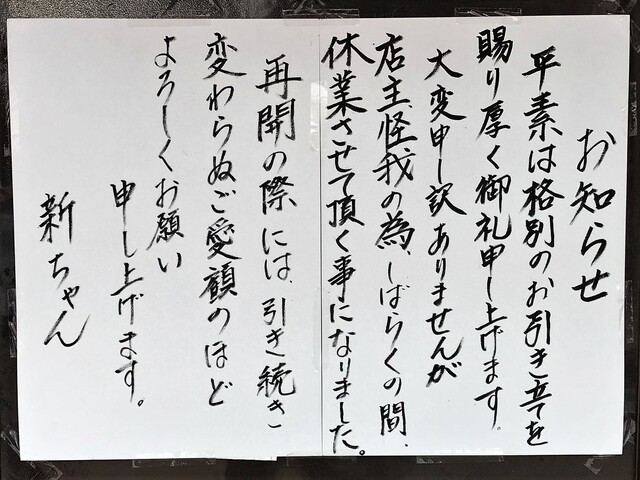 お知らせ
平素は格別のお引き立てを
賜り厚く御礼申し上げます。
大変申し訳ありませんが
店主怪我の為、しばらくの間、
休業させて頂く事になりました。
再開の際には、引き続き
変わらぬご愛顧のほど
よろしくお願い
申し上げます。
新ちゃん